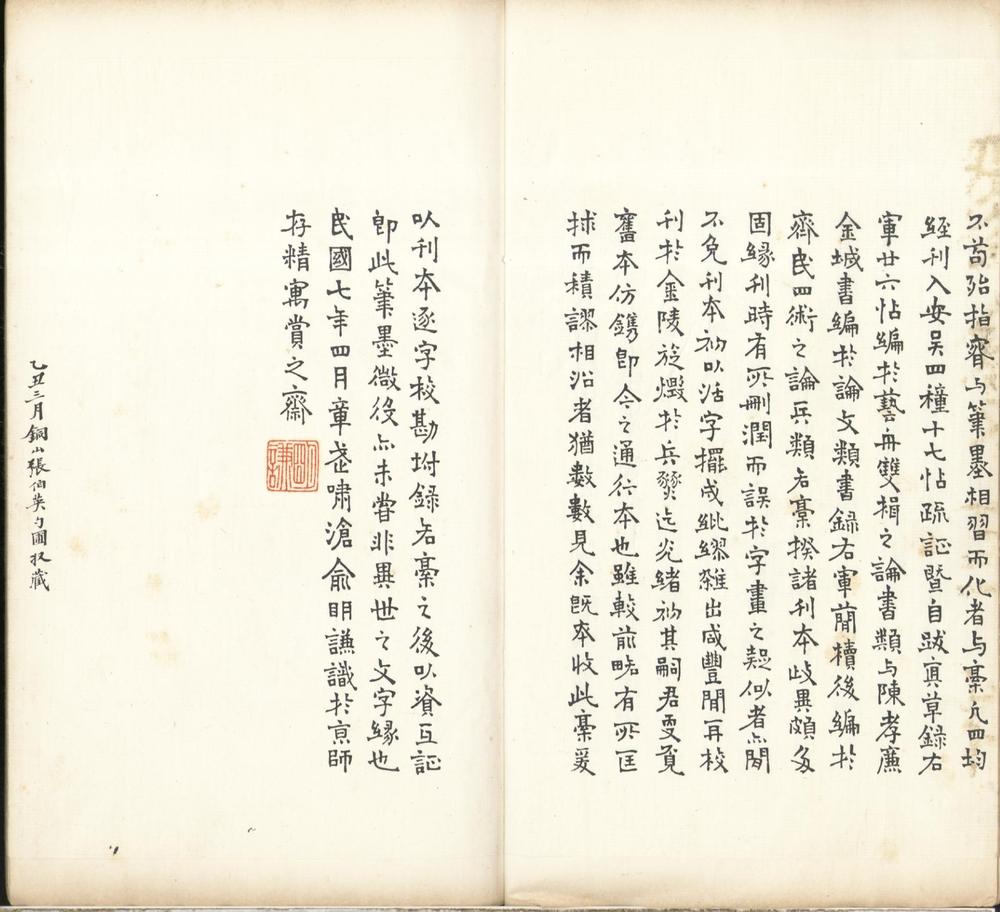 不苟殆指睿与筆墨相習而化者与稾凢四均
經刊入安吴四種十七帖疏証暨自跋真草録右
軍廿六帖編於藝舟雙楫之論書類与陳孝廉
金城書編於論文類書録右軍蕳牘後編於
齊民四術之論兵類名稾揆諸刊本歧異頗多
固緣刊時有所刪潤而誤於字畫之疑似者亦間
不免刊本初以活字擺成紕繆雜出咸豐閒再校
刊於金陵旋燬於兵燹迄光緒初其嗣君更覓
舊本仿鐫卽今之通行本也雖較前略有所匡
捄而積謬相沿者猶數數見余既夲收此稾爰
以刊本逐字校勘坿録名稾之後以資互証
卽此筆墨微役亦未嘗非異世之文字緣也
民國七年四月章武嘯滄俞明謙識於京師
存精寓賞之齋
俞明謙詞
乙丑三月銅山張伯英勺圃收藏